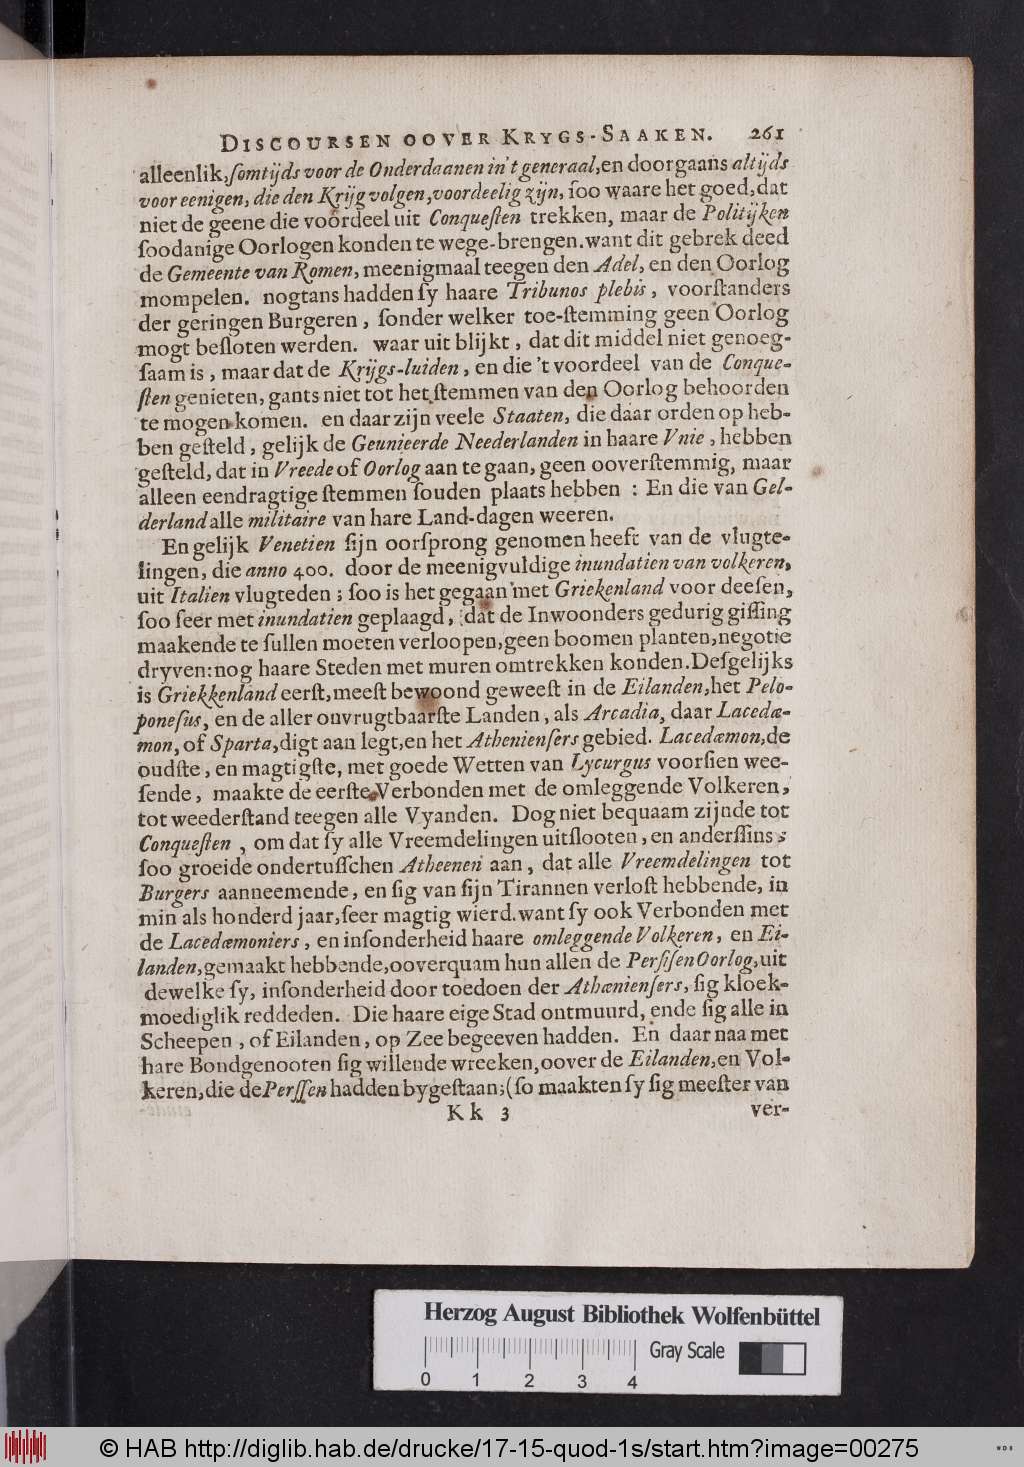 DISCOURSEN OOVER KRYGS-SAAKEN. 261
alleenlik, ſomtijds voor de Onderdaanen in 't generaal, en doorgaans altijds
voor eenigen, die den Krijg volgen, voordeelig zijn, ſoo waare het goed, dat
niet de geene die voordeel uit Conqueſten trekken, maar de Politijken
ſoodanige Oorlogen konden te wege-brengen. want dit gebrek deed
de Gemeente van Romen, meenigmaal teegen den Adel, en den Oorlog
mompelen. nogtans hadden ſy haare Tribunos plebis, voorſtanders
der geringen Burgeren, ſonder welker toe-ſtemming geen Oorlog
mogt beſloten werden. waar uit blijkt, dat dit middel niet genoeg-
ſaam is, maar dat de Krijgs-luiden, en die 't voordeel van de Conque-
ſten genieten, gants niet tot het ſtemmen van den Oorlog behoorden
te mogen komen. en daar zijn veele Staaten, die daar orden op heb-
ben geſteld, gelijk de Geunieerde Neederlanden in haare Vnie, hebben
geſteld, dat in Vreede of Oorlog aan te gaan, geen ooverſtemmig, maar
alleen eendragtige ſtemmen ſouden plaats hebben : En die van Gel-
derland alle militaire van hare Land-dagen weeren.
En gelijk Venetien ſijn oorſprong genomen heeft van de vlugte-
lingen, die anno 400. door de meenigvuldige inundatien van volkeren,
uit Italien vlugteden ; ſoo is het gegaan met Griekenland voor deeſen,
ſoo ſeer met inundatien geplaagd, dat de Inwoonders gedurig giſſing
maakende te ſullen moeten verloopen, geen boomen planten, negotie
dryven: nog haare Steden met muren omtrekken konden. Deſgelijks
is Griekkenland eerſt, meeſt bewoond geweeſt in de Eilanden, het Pelo-
poneſus, en de aller onvrugtbaarſte Landen, als Arcadia, daar Lacedæ-
mon, of Sparta, digt aan legt, en het Athenienſers gebied. Lacedæmon, de
oudſte, en magtigſte, met goede Wetten van Lycurgus voorſien wee-
ſende, maakte de eerſte Verbonden met de omleggende Volkeren,
tot weederſtand teegen alle Vyanden. Dog niet bequaam zijnde tot
Conqueſten, om dat ſy alle Vreemdelingen uitſlooten, en anderſſins ;
ſoo groeide ondertuſſchen Atheenen aan, dat alle Vreemdelingen tot
Burgers aanneemende, en ſig van ſijn Tirannen verloſt hebbende, in
min als honderd jaar, ſeer magtig wierd. want ſy ook Verbonden met
de Lacedæmoniers, en inſonderheid haare omleggende Volkeren, en Ei-
landen, gemaakt hebbende, ooverquam hun allen de Perſiſen Oorlog, uit
dewelke ſy, inſonderheid door toedoen der Athænienſers, ſig kloek-
moediglik reddeden. Die haare eige Stad ontmuurd, ende ſig alle in
Scheepen, of Eilanden, op Zee begeeven hadden. En daar naa met
hare Bondgenooten ſig willende wreeken, oover de Eilanden, en Vol-
keren, die de Perſſen hadden bygeſtaan; (ſo maakten ſy ſig meeſter van
K k 3 ver-
Herzog August Bibliothek Wolfenbüttel
Gray Scale
0 1 2 3 4
© HAB http://diglib.hab.de/drucke/17-15-quod-1s/start.htm?image=00275